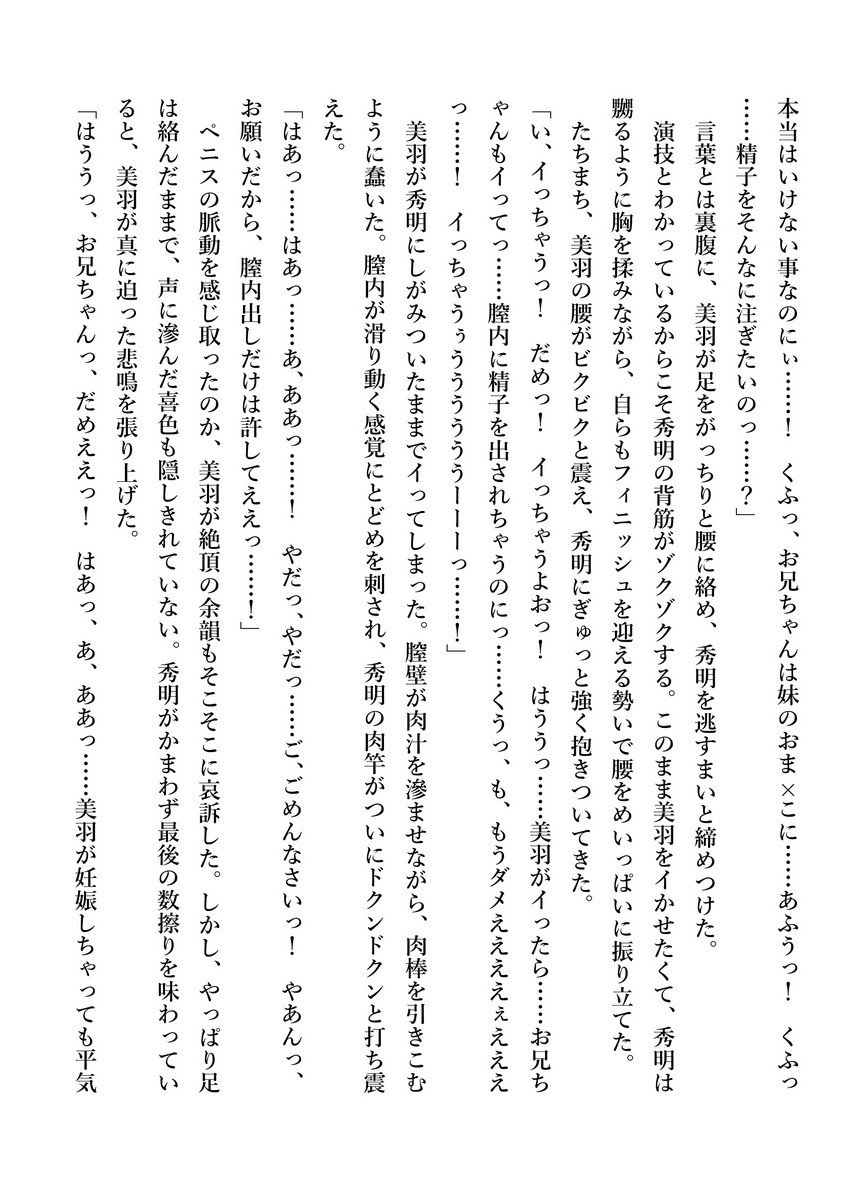 本当はいけない事なのにぃ……！　くふっ、お兄ちゃんは妹のおま×こに……あふうっ！　くふっ
……精子をそんなに注ぎたいのっ……？」
　言葉とは裏腹に、美羽が足をがっちりと腰に絡め、秀明を逃すまいと締めつけた。
　演技とわかっているからこそ秀明の背筋がゾクゾクする。このまま美羽をイかせたくて、秀明は
嬲るように胸を揉みながら、自らもフィニッシュを迎える勢いで腰をめいっぱいに振り立てた。
　たちまち、美羽の腰がビクビクと震え、秀明にぎゅっと強く抱きついてきた。
「い、イっちゃうっ！　だめっ！　イっちゃうよおっ！　はううっ……美羽がイったら……お兄ち
ゃんもイってっ……膣内に精子を出されちゃうのにっ……くうっ、も、もうダメええええぇえええ
っ……！　イっちゃうぅうううううーーーっ……！」
　美羽が秀明にしがみついたままでイってしまった。膣壁が肉汁を滲ませながら、肉棒を引きこむ
ように蠢いた。膣内が滑り動く感覚にとどめを刺され、秀明の肉竿がついにドクンドクンと打ち震
えた。
「はあっ……はあっ……あ、ああっ……！　やだっ、やだっ……ご、ごめんなさいっ！　やあんっ、
お願いだから、膣内出しだけは許してええっ……！」
　ペニスの脈動を感じ取ったのか、美羽が絶頂の余韻もそこそこに哀訴した。しかし、やっぱり足
は絡んだままで、声に滲んだ喜色も隠しきれていない。秀明がかまわず最後の数擦りを味わってい
ると、美羽が真に迫った悲鳴を張り上げた。
「はううっ、お兄ちゃんっ、だめええっ！　はあっ、あ、ああっ……美羽が妊娠しちゃっても平気